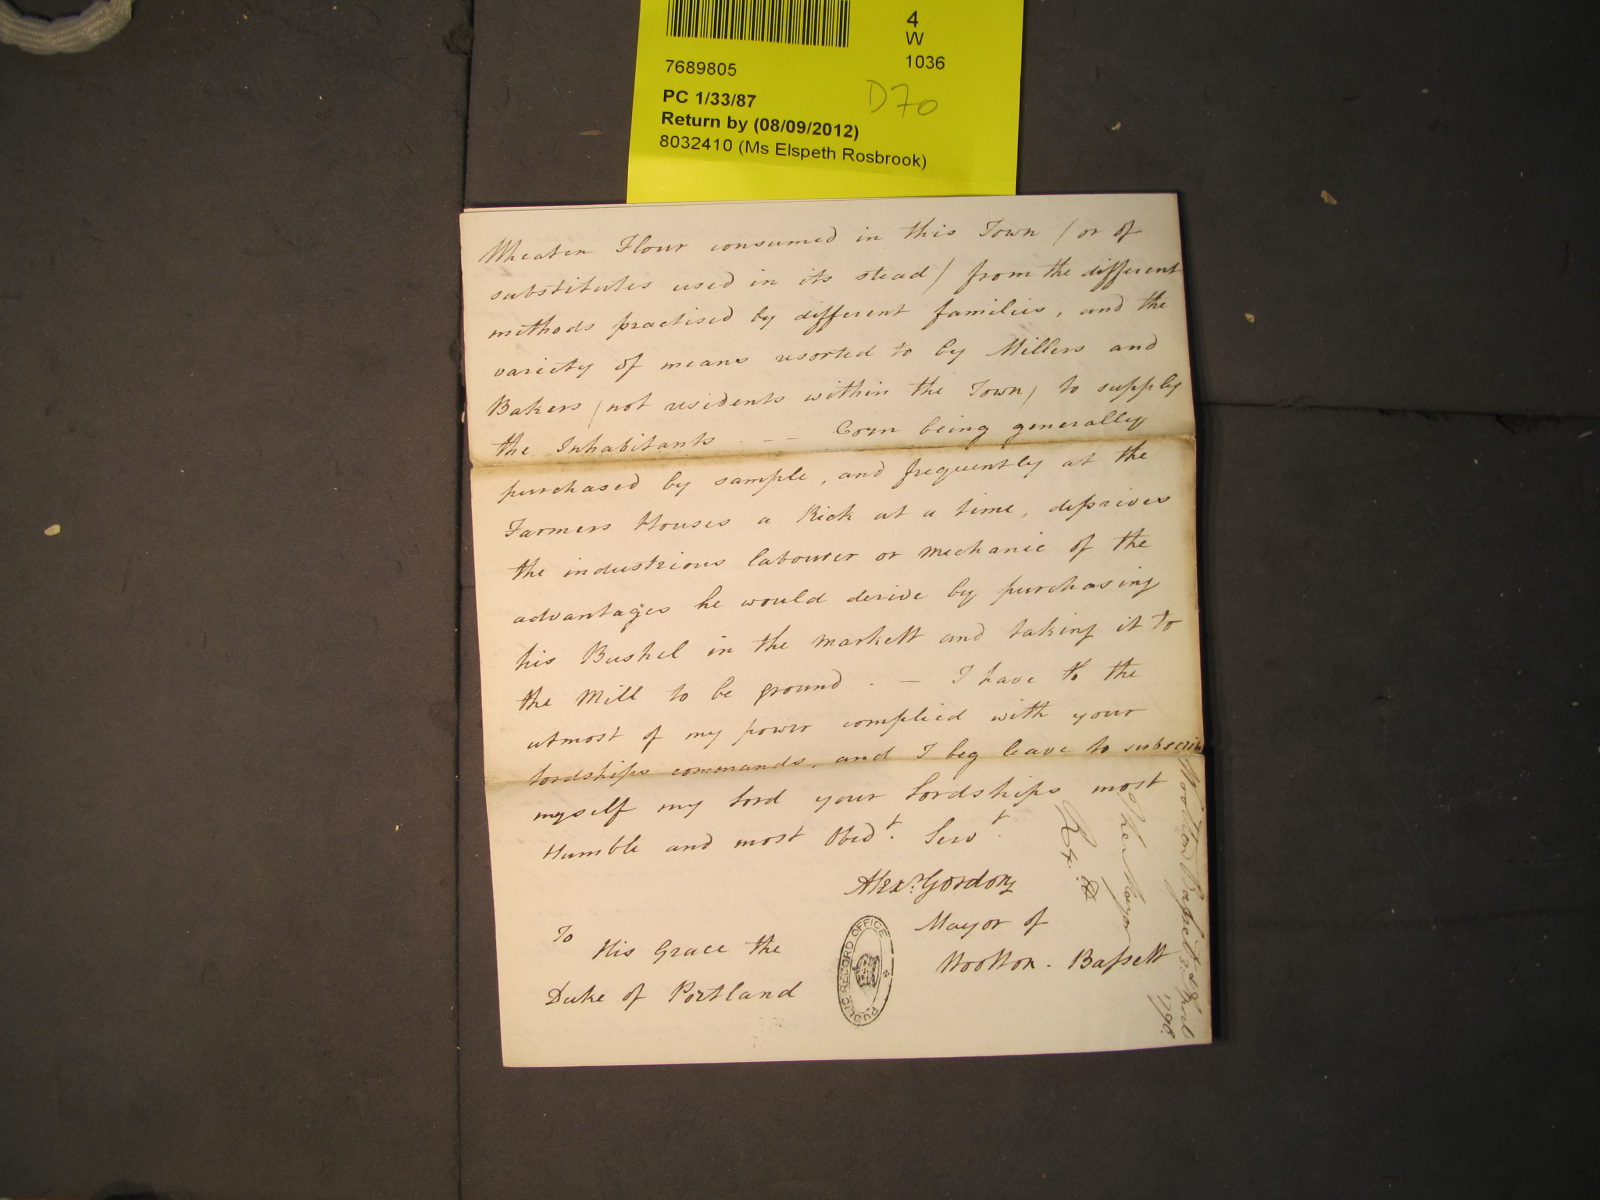 4
W
7689805
1036
PC 1/33/87
D70
Return by (08/09/2012)
8032410 (Ms Elspeth Rosbrook)
Wheaten Flour consumed in this Town / or of
substitutes used in its stead / from the different
methods practised by different families, and the
variety of means resorted to by Millers and
Bakers / not residents within the Town / to supply
the Inhabitants - - Corn being generally
purchased by sample, and frequently at the
Farmers Houses a Rick at a time, deprives
the industrious labourer or mechanic of the
advantages he would derive by purchasing
his Bushel in the markett and taking it to
the Mill to be ground. - I have to the
utmost of my power complied with your
Lordships commands, and I beg leave to subscribe
myself my Lord your Lordships most
Humble and most Obedt. Servt.
Alexr. Gordon
Mayor of
Wootton-Bassett
To
His Grace the
Duke of Portland
PUBLIC RECORD OFFICE
Wootton Bassett
1796.
The Mayor